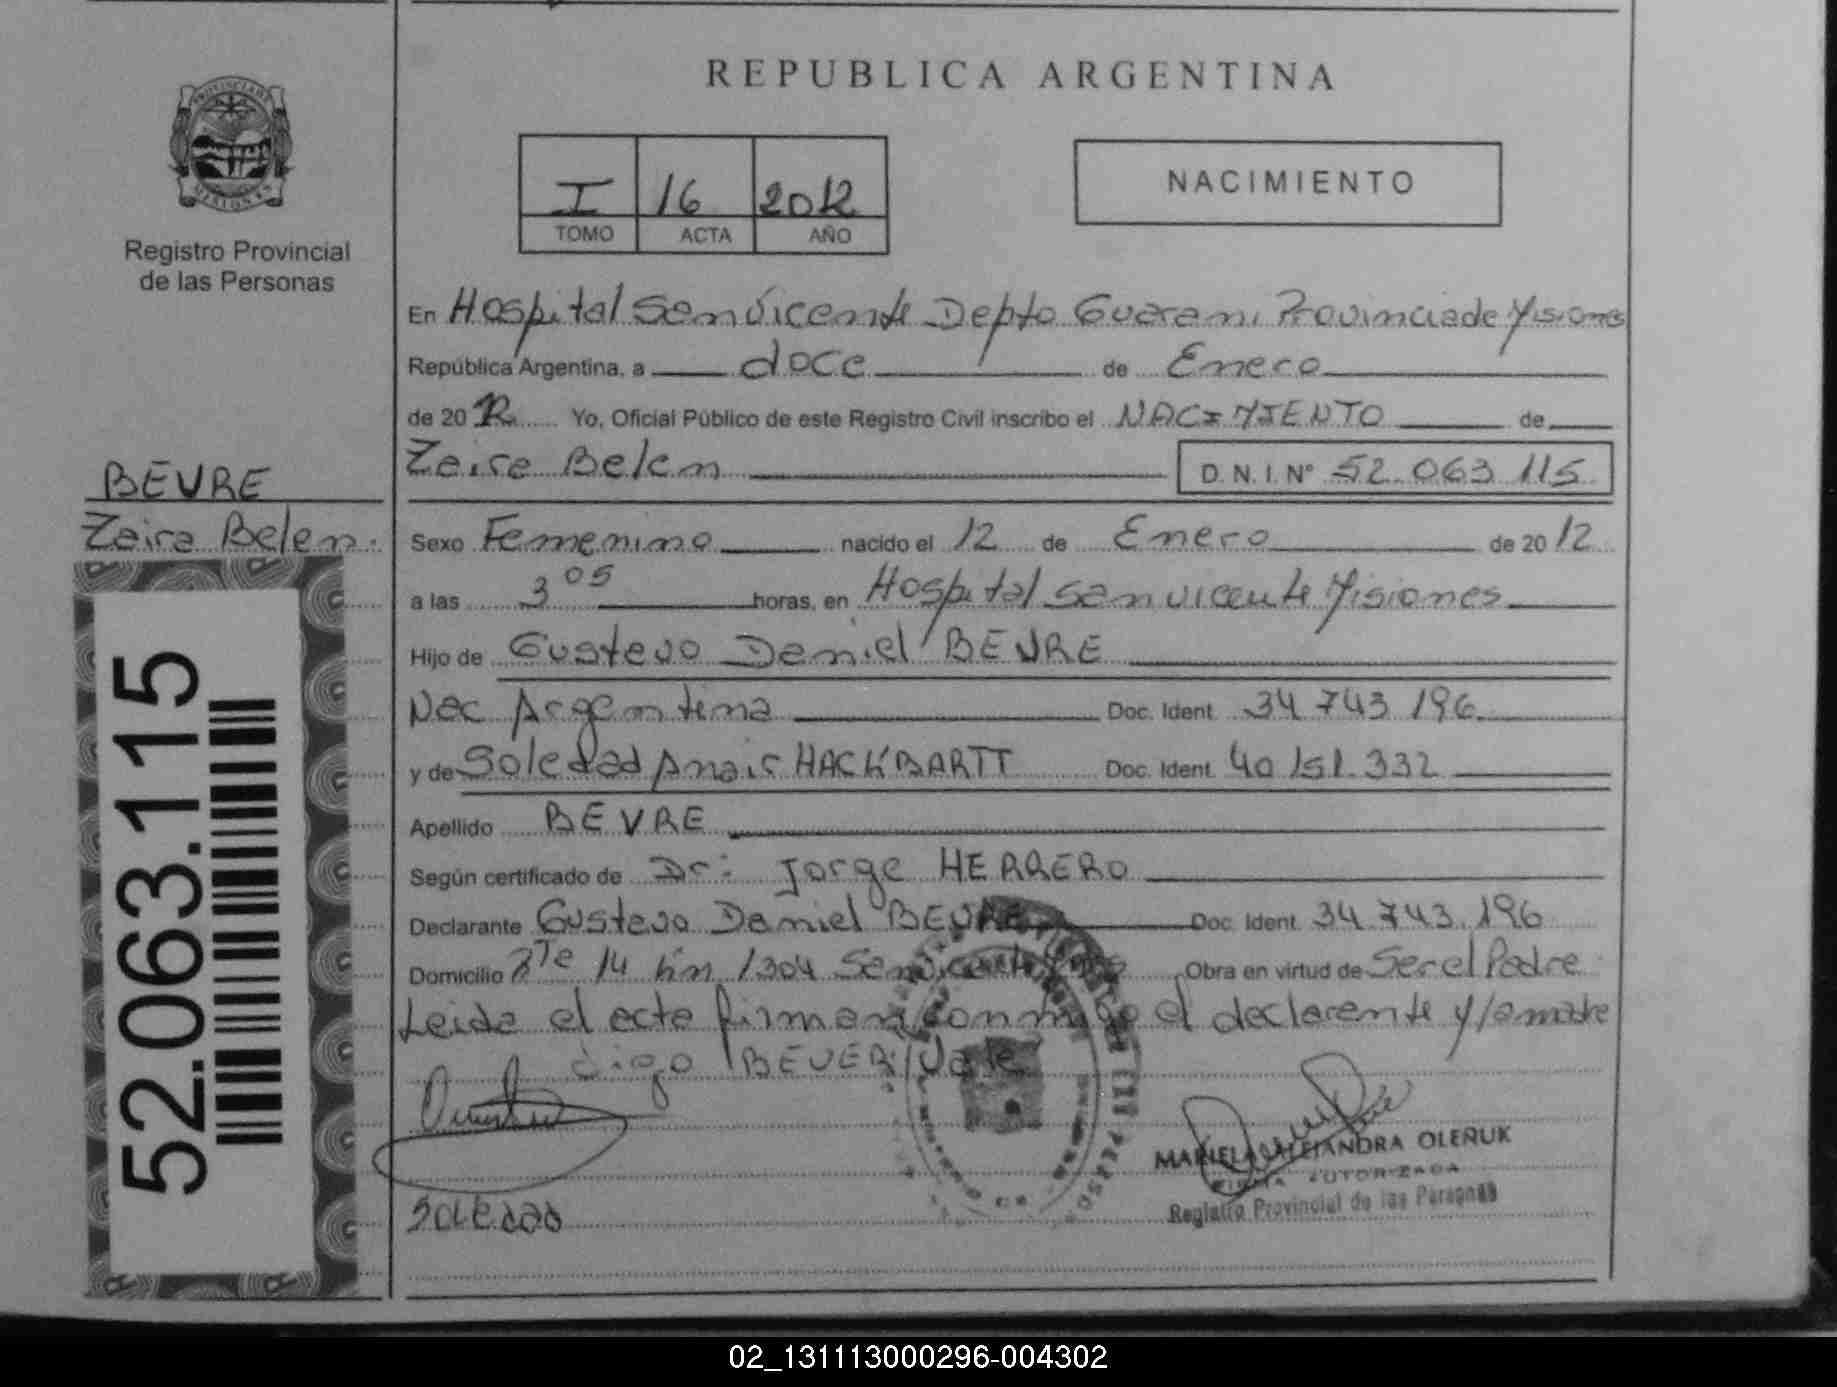 REPUBLICA ARGENTINA
PROVINCIA DE
MISIONES
Registro Provincial
de las Personas
I 16 2012
TOMO ACTA AÑO
NACIMIENTO
En Hospital San Vicente Depto Guarani Provincia de Misiones
República Argentina, a doce de Enero
de 2012 Yo, Oficial Público de este Registro Civil inscribo el NACIMIENTO de
Zaira Belen D.N.I. N° 52.063.115
BEVRE
Zaira Belen.
Sexo Femenino nacido el 12 de Enero de 2012
a las 3 05 horas, en Hospital San Vicente Misiones
Hijo de Gustavo Daniel BEVRE
Nac Argentina Doc. Ident. 34.743.196
y de Soledad Anair HACKBARTT Doc. Ident. 40.151.332
Apellido BEVRE
Según certificado de Dr: Jorge HERRERO
Declarante Gustavo Daniel BEVRE Doc. Ident. 34.743.196
Domicilio Rte 14 km 1304 San Vicente Obra en virtud de Ser el Padre
Leida el acta firman conmigo el declarante y la madre
digo BEVER Vale
52.063.115
MARIELA ALEJANDRA OLEÑUK
FIRMA AUTORIZADA
Registro Provincial de las Personas
Soledad
02_131113000296-004302